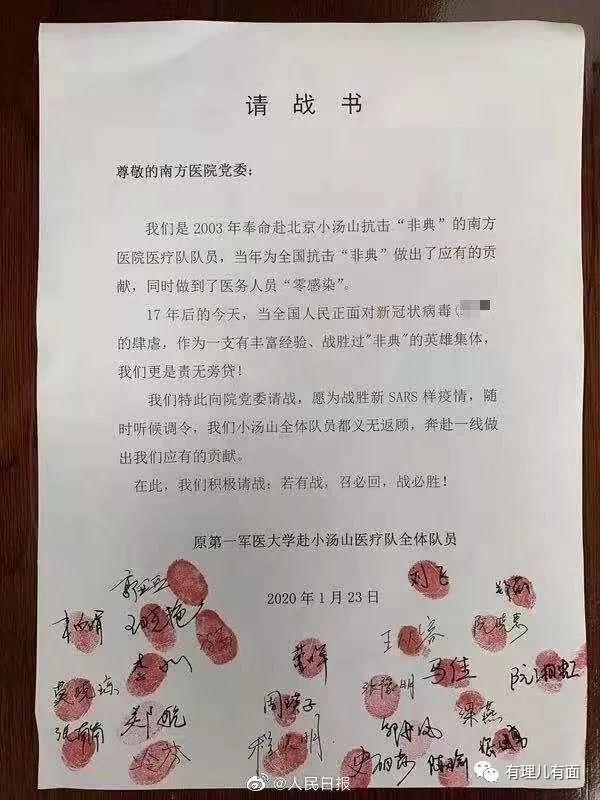 请 战 书
尊敬的南方医院党委：
我们是 2003 年奉命赴北京小汤山抗击“非典”的南方
医院医疗队队员，当年为全国抗击“非典”做出了应有的贡
献，同时做到了医务人员“零感染”。
17 年后的今天，当全国人民正面对新冠状病毒（
的肆虐，作为一支有丰富经验、战胜过"非典"的英雄集体，
我们更是责无旁贷！
我们特此向院党委请战，愿为战胜新 SARS 样疫情，随
时听候调令，我们小汤山全体队员都义无返顾，奔赴一线做
出我们应有的贡献。
在此，我们积极请战：若有战，召必回，战必胜！
原第一军医大学赴小汤山医疗队全体队员
2020 年 1 月 23 日
刘飞
马佳
@人民日报
有理儿有面